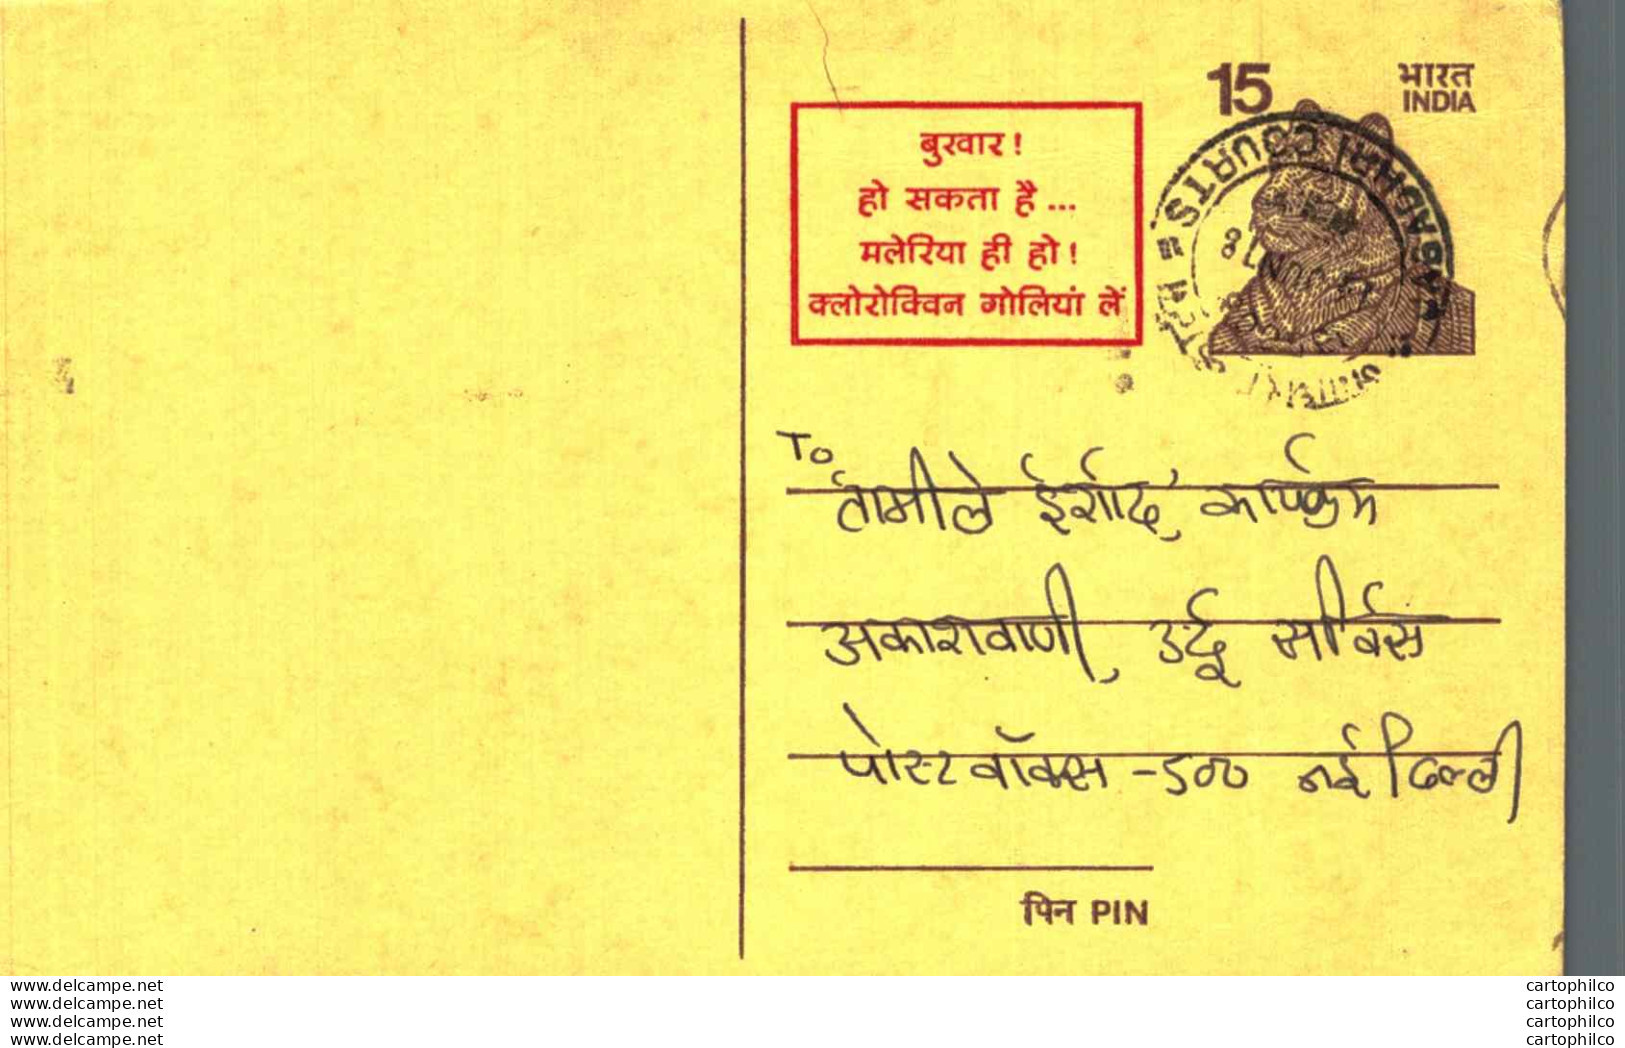 15
भारत
INDIA
बुखार!
हो सकता है...
मलेरिया ही हो!
क्लोरोक्विन गोलियां लें
COURTS
JUN 78
To
तामीले ईर्शाद, कार्यक्रम
अकाशवाणी, उर्दू सर्विस
पोस्ट बॉक्स -500 नई दिल्ली
पिन PIN
www.delcampe.net
www.delcampe.net
www.delcampe.net
www.delcampe.net
cartophilco
cartophilco
cartophilco
cartophilco